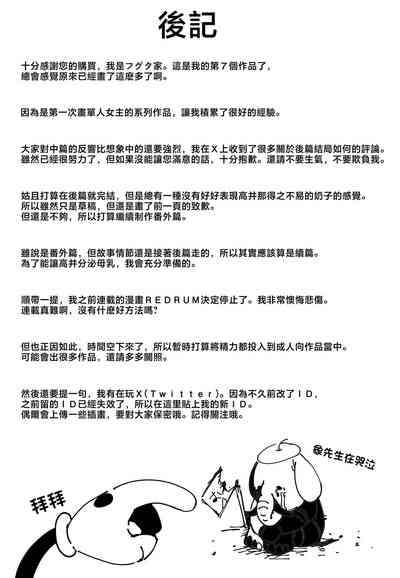 後記
十分感謝您的購買，我是フグタ家。這是我的第７個作品了，
總會感覺原來已經畫了這麼多了啊。
因為是第一次畫單人女主的系列作品，讓我積累了很好的經驗。
大家對中篇的反響比想象中的還要強烈，我在Ｘ上收到了很多關於後篇結局如何的評論。
雖然已經很努力了，但如果沒能讓您滿意的話，十分抱歉。還請不要生氣，不要欺負我。
姑且打算在後篇就完結，但是總有一種沒有好好表現高井那得之不易的奶子的感覺。
所以雖然只是草稿，但還是畫了前一頁的致歉。
但還是不夠，所以打算繼續制作番外篇。
雖說是番外篇，但故事情節還是接著後篇走的，所以其實應該算是續篇。
為了能讓高井分泌母乳，我會充分準備的。
順帶一提，我之前連載的漫畫ＲＥＤＲＵＭ決定停止了。我非常懊悔悲傷。
連載真難啊，沒有什麼好方法嗎？
但也正因如此，時間空下來了，所以暫時打算將精力都投入到成人向作品當中。
可能會出很多作品，還請多多關照。
然後還要提一句，我有在玩Ｘ（Ｔｗｉｔｔｅｒ）。因為不久前改了ＩＤ，
之前留的ＩＤ已經失效了，所以在這里貼上我的新ＩＤ。
偶爾會上傳一些插畫，要對大家保密哦。記得關注哦。
象先生在哭泣
拜拜